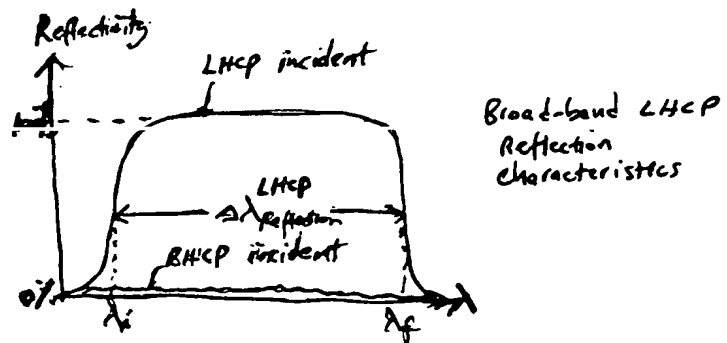 Reflectivity
LHCP incident
Broad-band LHCP
Reflection
characteristics
LHCP
Δλ Reflection
RHCP incident
0%
λi
λf
λ